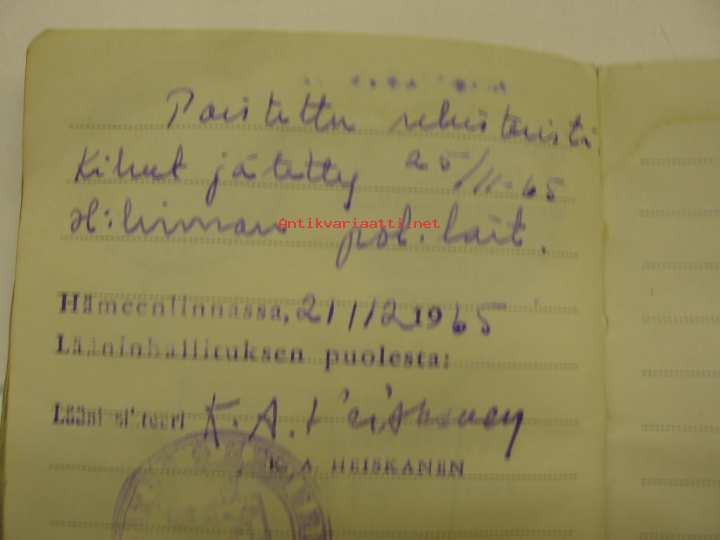 Poistettu rekisteristä
Kilvet jätetty 25/11-65
H:linnan pol.lait.
Antikvariaatti.net
Hämeenlinnassa, 21/12 1965
Lääninhallituksen puolesta:
K. A. Heiskanen
K. A. HEISKANEN